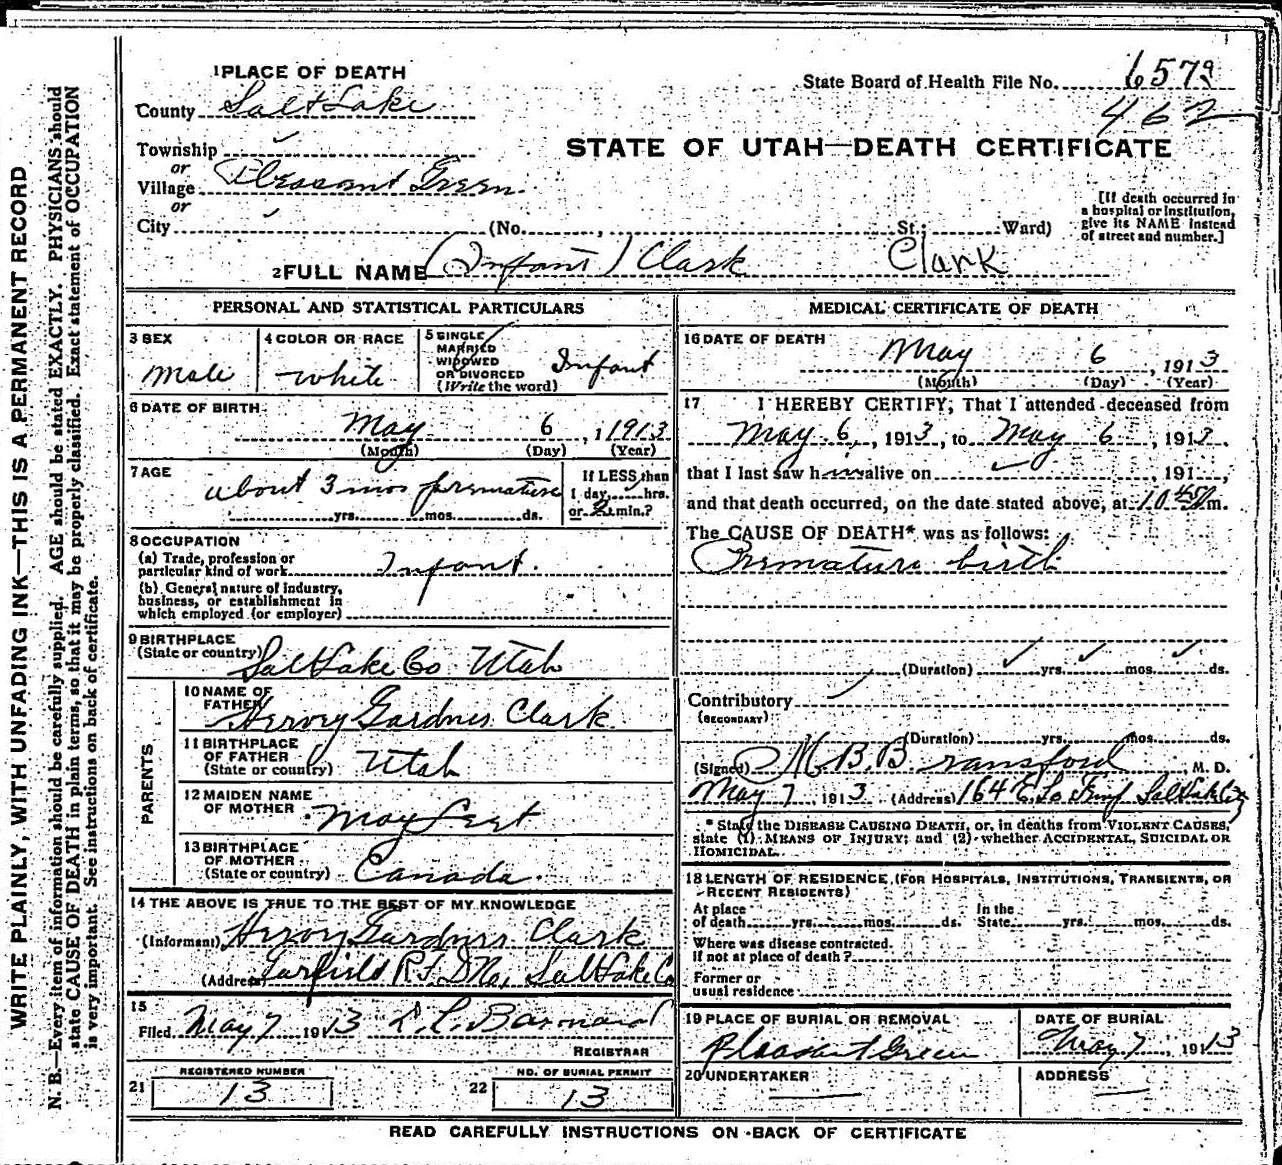 WRITE PLAINLY, WITH UNFADING INK—THIS IS A PERMANENT RECORD
N. B.—Every item of information should be carefully supplied. AGE should be stated EXACTLY. PHYSICIANS should
state CAUSE OF DEATH in plain terms, so that it may be properly classified. Exact statement of OCCUPATION
is very important. See instructions on back of certificate.
1 PLACE OF DEATH
State Board of Health File No. 657
462
County Salt Lake
STATE OF UTAH—DEATH CERTIFICATE
Township
or
Village Pleasant Green
or
City (No. , St.; Ward)
[If death occurred in
a hospital or institution,
give its NAME instead
of street and number.]
2 FULL NAME (Infant) Clark Clark
PERSONAL AND STATISTICAL PARTICULARS
3 SEX
Male
4 COLOR OR RACE
White
5 SINGLE
MARRIED
WIDOWED
OR DIVORCED
(Write the word)
Infant
6 DATE OF BIRTH
May 6, 1 1913
(Month) (Day) (Year)
7 AGE
about 3 mos premature
yrs. mos. ds.
If LESS than
1 day, hrs.
or 2 min.?
8 OCCUPATION
(a) Trade, profession or
particular kind of work Infant.
(b) General nature of industry,
business, or establishment in
which employed (or employer)
9 BIRTHPLACE
(State or country)
Salt Lake Co Utah
PARENTS
10 NAME OF
FATHER
Hervey Gardner Clark
11 BIRTHPLACE
OF FATHER
(State or country)
Utah
12 MAIDEN NAME
OF MOTHER
May
13 BIRTHPLACE
OF MOTHER
(State or country)
Canada.
14 THE ABOVE IS TRUE TO THE BEST OF MY KNOWLEDGE
(Informant) Hervey Gardner Clark
(Address) Garfield R.F.D No, Salt Lake Co
15
Filed May 7 1913 L. L. Barnard
REGISTRAR
21 REGISTERED NUMBER
13
22 NO. OF BURIAL PERMIT
13
MEDICAL CERTIFICATE OF DEATH
16 DATE OF DEATH
May 6, 1913
(Month) (Day) (Year)
17 I HEREBY CERTIFY, That I attended deceased from
May 6, 1913, to May 6, 1913.
that I last saw him alive on , 191 ,
and that death occurred, on the date stated above, at 10 45 P m.
The CAUSE OF DEATH* was as follows:
Premature birth
(Duration) yrs. mos. ds.
Contributory
(SECONDARY)
(Duration) yrs. mos. ds.
(Signed) M. B. Bransford, M. D.
May 7, 1913 (Address) 164 E So Temp Salt Lake City
* State the DISEASE CAUSING DEATH, or, in deaths from VIOLENT CAUSES,
state (1) MEANS OF INJURY; and (2) whether ACCIDENTAL, SUICIDAL OR
HOMICIDAL.
18 LENGTH OF RESIDENCE (FOR HOSPITALS, INSTITUTIONS, TRANSIENTS, OR
RECENT RESIDENTS)
At place In the
of death yrs. mos. ds. State yrs. mos. ds.
Where was disease contracted.
If not at place of death?
Former or
usual residence
19 PLACE OF BURIAL OR REMOVAL
Pleasant Green
DATE OF BURIAL
May 7, 1913
20 UNDERTAKER
ADDRESS
READ CAREFULLY INSTRUCTIONS ON BACK OF CERTIFICATE